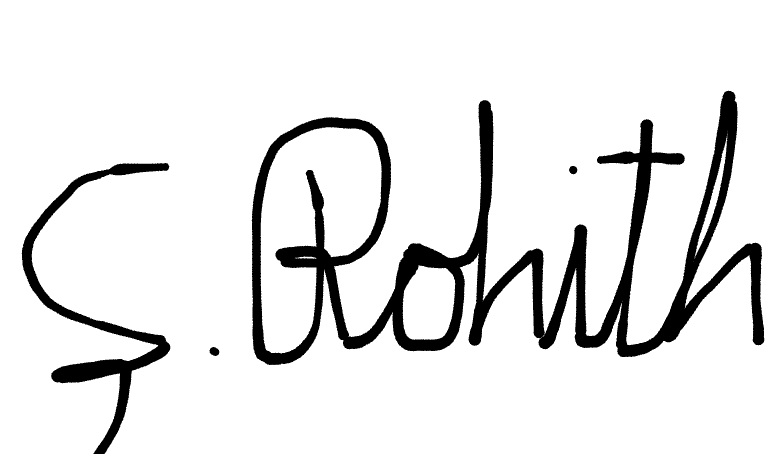 S. Rohith